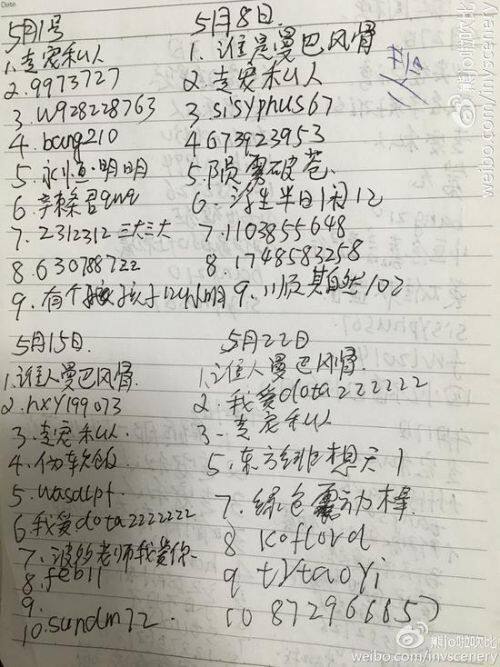 5月1号
1.李宠和人
2.9973727
3.w928228763
4.bang210
5.永恒·明明
6.辛榛君qwq
7.2312312三大三大
8.630788722
9.有个孩子叫小明
5月8日
1.谁是曼巴风骨
2.李宠私人
3.sisyphus67
4 673923953
5.陨雾破苍
6.浮生半日闲12
7.1103855648
8.1748583258
9.顺其自然102
5月15日
1.谁人曼巴风骨
2.hxy199073
3.李宠私人
4.伪软饭
5.wasdlpf
6.我爱dota2222222
7.波多老师我爱你
8.feb11
9.
10.sundm72
5月22日
1.谁人曼巴风骨
2.我爱dota222222
3.李宠私人
5.东方绯想天1
7.绿色震动棒
8 koflord
9 trtaoyi
10 872966857
熊jo啪吹比
weibo.com/invscenery
熊jo啪吹比
weibo.com/invscenery